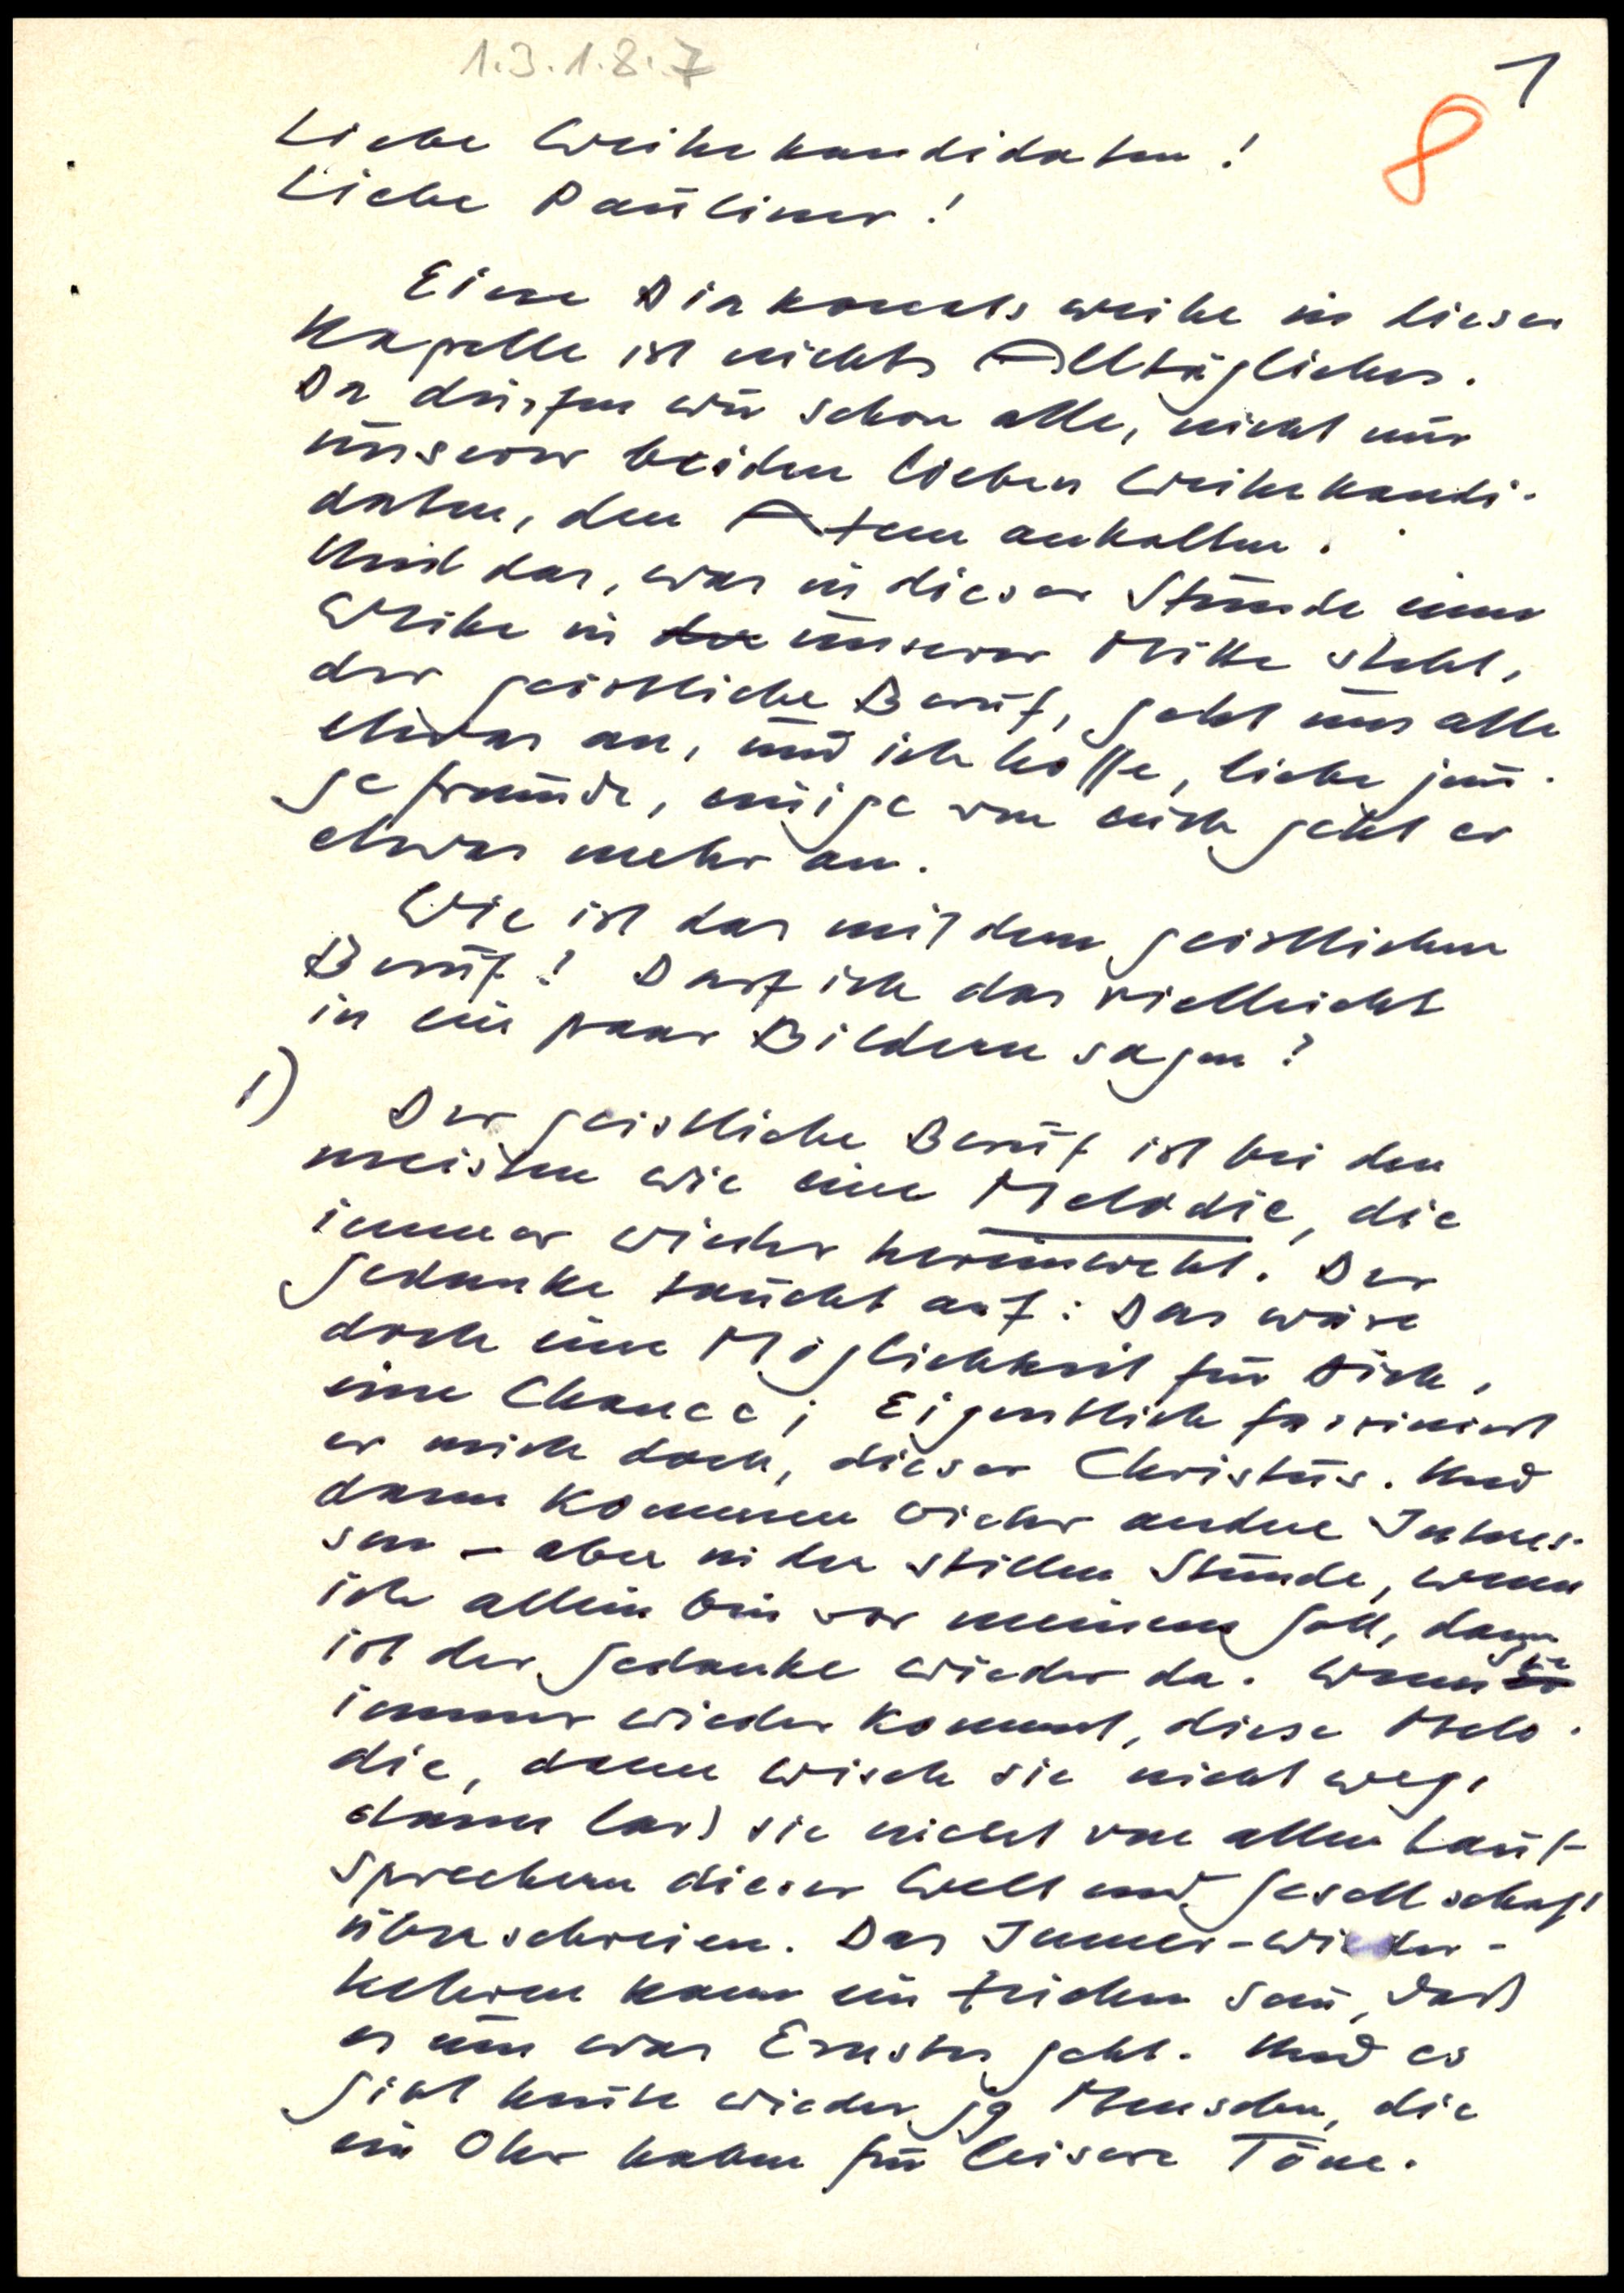 1.3.1.8.7
1
8
Liebe Weihekandidaten!
Liebe Pauliner!
Eine Diakonatsweihe in dieser
Kapelle ist nichts Alltägliches.
Da dürfen wir schon alle, nicht nur
unsere beiden lieben Weihekandi-
daten, den Atem anhalten.
Und das, was in dieser Stunde einer
Weihe in der unserer Mitte steht,
der geistliche Beruf, geht uns alle
etwas an, und ich hoffe, liebe jun-
ge Freunde, einige von euch geht er
etwas mehr an.
Wie ist das mit dem geistlichen
Beruf? Darf ich das vielleicht
in ein paar Bildern sagen?
1) Der geistliche Beruf ist bei den
meisten wie eine Melodie, die
immer wieder hereinweht. Der
Gedanke taucht auf: Das wäre
doch eine Möglichkeit für Dich,
eine Chance; Eigentlich fasziniert
er mich doch, dieser Christus. Und
dann kommen wieder andere Interes-
sen – aber in der stillen Stunde, wenn
ich allein bin vor meinem Gott, dann
ist der Gedanke wieder da. Wenn sie
immer wieder kommt, diese Melo-
die, dann wisch sie nicht weg,
dann lass sie nicht von allen Laut-
sprechern dieser Welt und Gesellschaft
überschreien. Das Immer-wieder-
kehren kann ein Zeichen sein, daß
es um was Ernstes geht. Und es
gibt heute wieder jg Menschen, die
ein Ohr haben für leisere Töne.